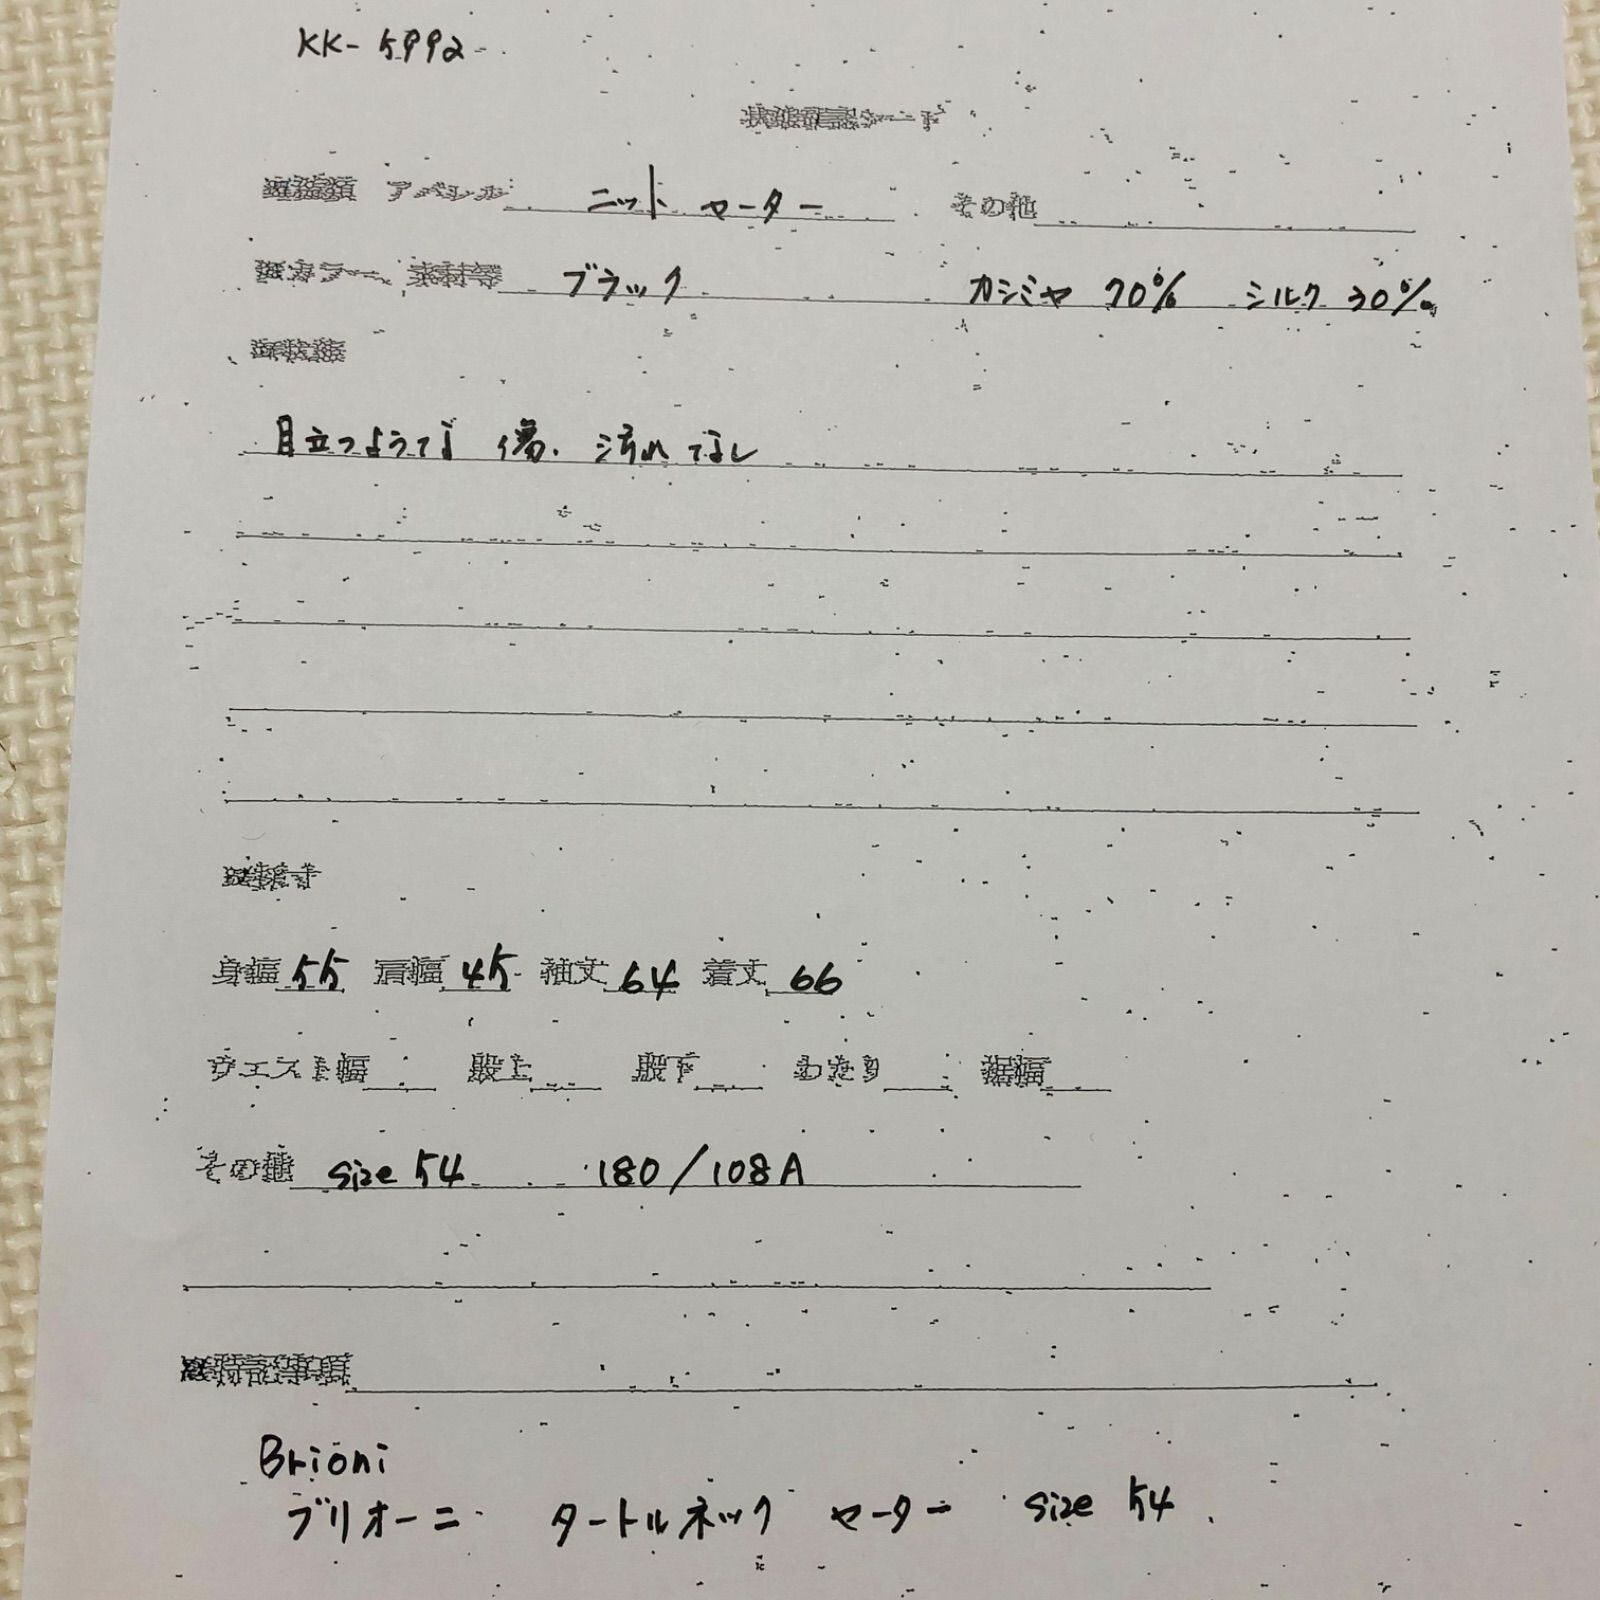 KK-5992
状態確認シート
アパレル ニット セーター その他
カラー、素材等 ブラック カシミヤ 70% シルク 30%
目立つような 傷、汚れ なし
採寸
身幅 55 肩幅 45 袖丈 64 着丈 66
ウエスト幅 股上 股下 わたり 裾幅
その他 size 54 180/108A
特記事項
Brioni
ブリオーニ タートルネック セーター size 54